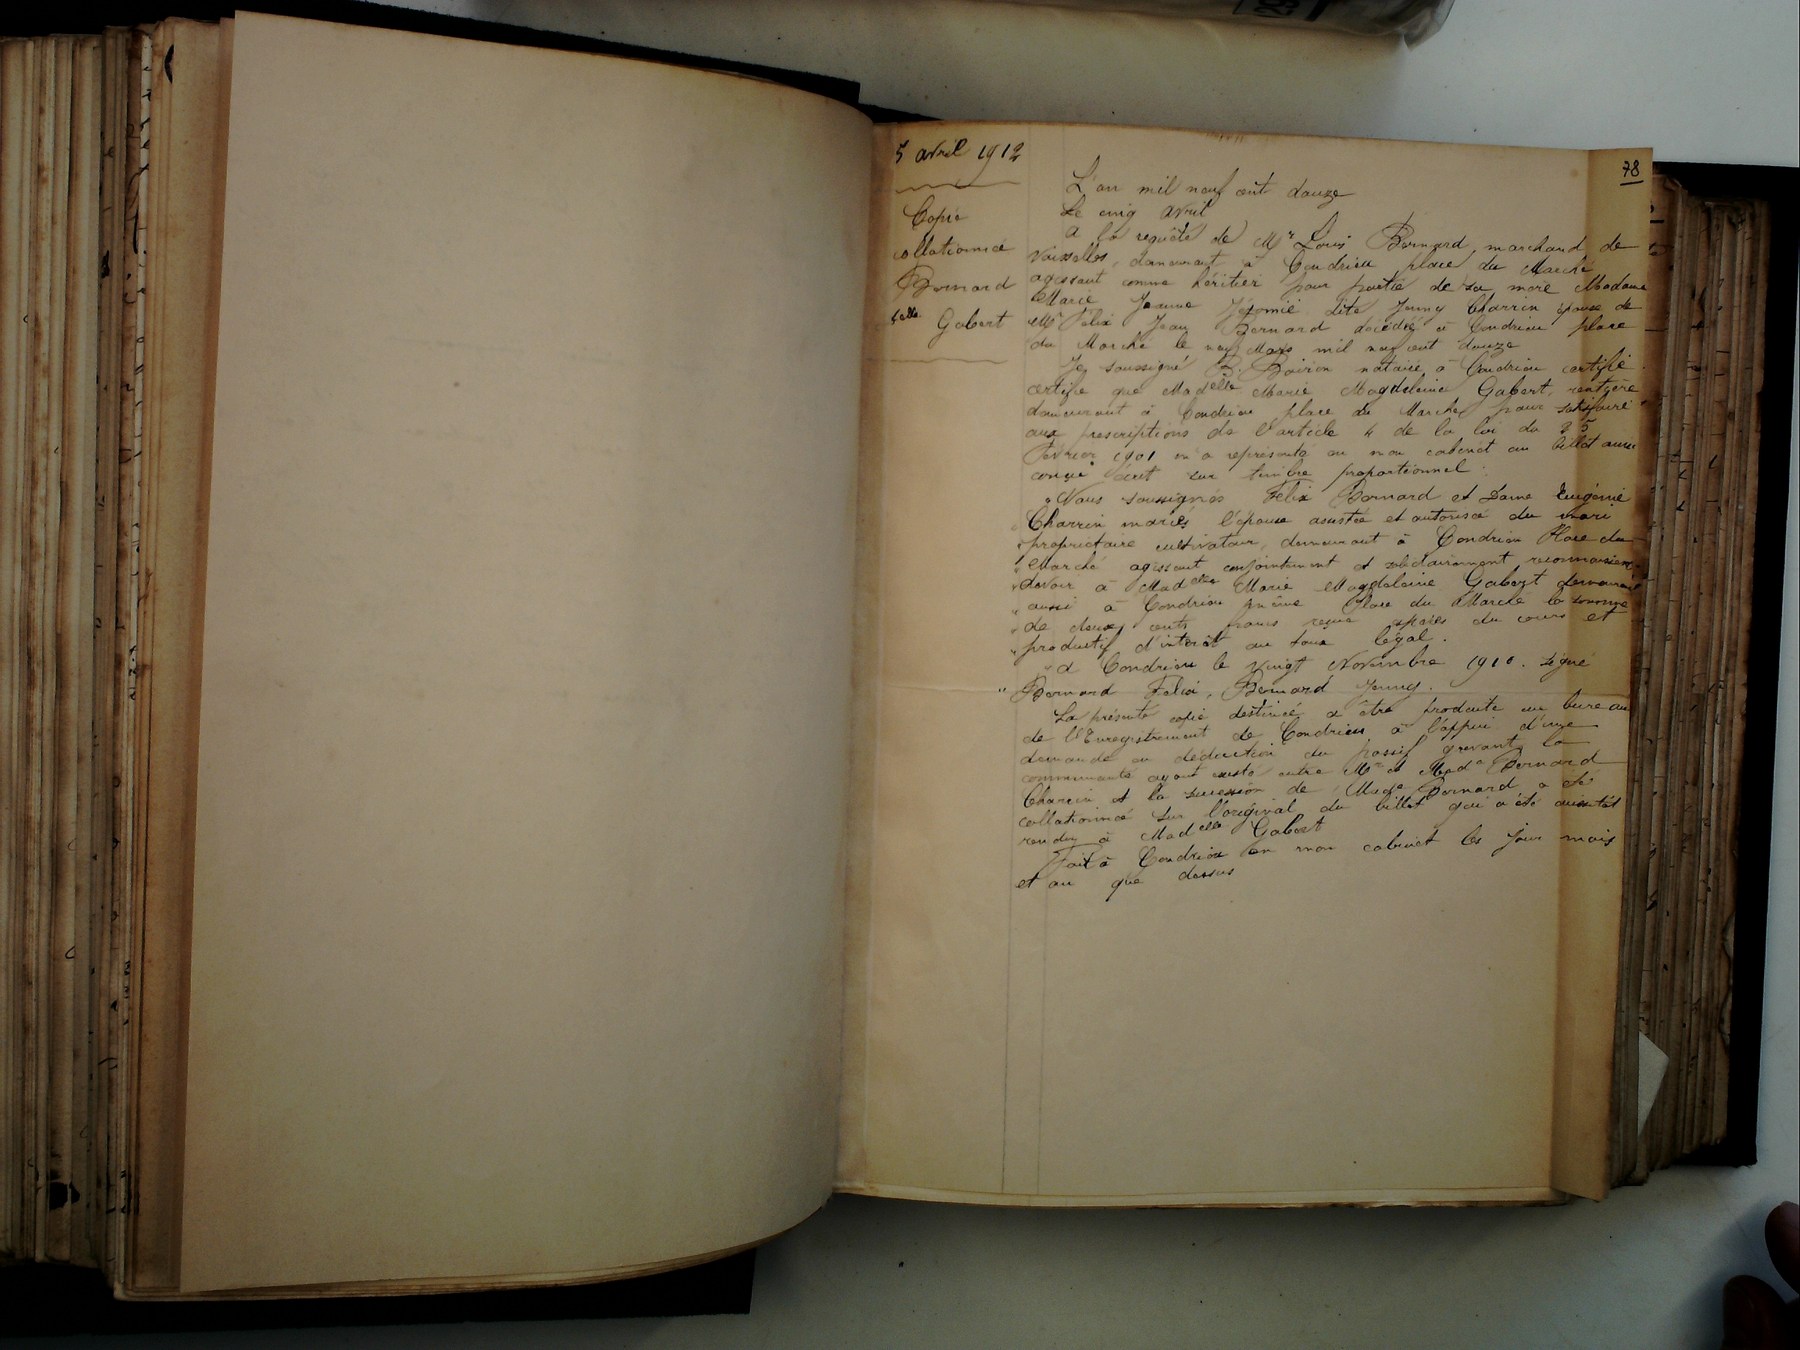 78
5 avril 1912
Copie
collationnée
Bernard
delle Gabert
L'an mil neuf cent douze
Le cinq avril
A la requête de Mr Louis Bernard, marchand de
vaisselles, demeurant à Condrieu place du Marché
agissant comme héritier pour partie de sa mère Madame
Marie Jeanne dite Jenny Charrin épouse de
Mr Félix Jean Bernard décédée à Condrieu place
du Marché le neuf Mars mil neuf cent douze
Je soussigné B. Boiron notaire à Condrieu certifie
certifie que Madelle Marie Magdeleine Gabert, rentière
demeurant à Condrieu place du Marché pour satisfaire
aux prescriptions de l'article 4 de la loi du 25
Février 1901 m'a représenté en mon cabinet un billet ainsi
conçu écrit sur timbre proportionnel :
"Nous soussignés Félix Bernard et Dame Eugénie
"Charrin mariés l'épouse assistée et autorisée du mari
"propriétaire cultivateur, demeurant à Condrieu Place du
"Marché agissant conjointement et solidairement reconnaissons
"devoir à Madelle Marie Magdeleine Gabert demeurant
"aussi à Condrieu même Place du Marché la somme
"de deux cents francs reçue espèces du cours et
"productif d'intérêt au taux légal.
"à Condrieu le vingt Novembre 1910. signé
"Bernard Félix, Bernard Jenny.
La présente copie destinée à être produite au bureau
de l'Enregistrement de Condrieu à l'appui d'une
demande en déduction du passif grevant la
communauté ayant existé entre Mr et Made Bernard
Charrin et la succession de Made Bernard a été
collationnée sur l'original du billet qui a été aussitôt
rendu à Madelle Gabert
Fait à Condrieu en mon cabinet les jour mois
et an que dessus